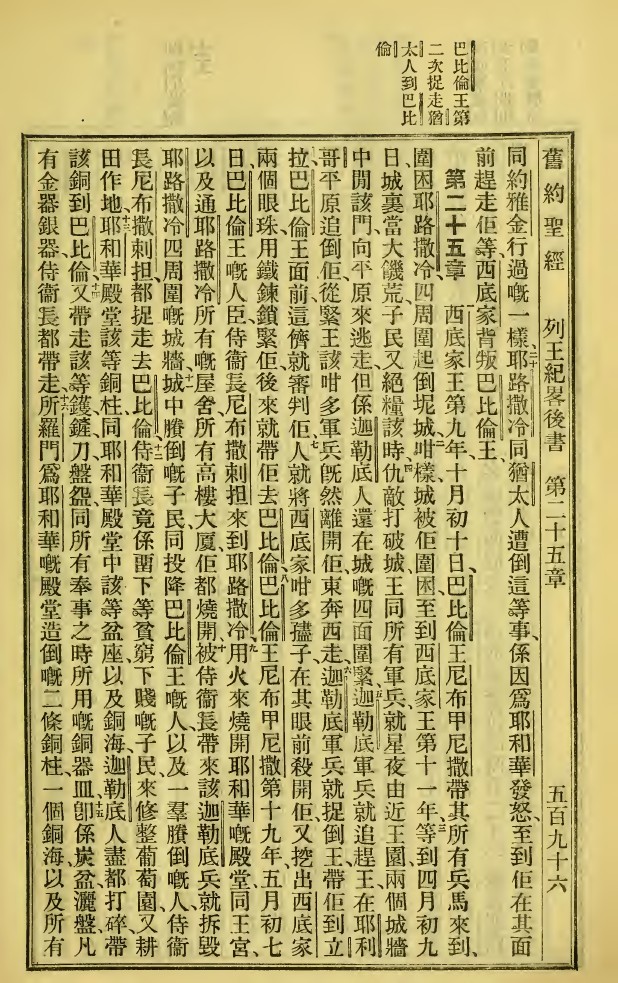 巴比倫王第
二次捉走猶
太人到巴比
倫
舊約聖經 列王紀畧後書 第二十五章 五百九十六
同約雅金行過嘅一樣、二十耶路撒冷同猶太人遭倒這等事、係因爲耶和華發怒、至到佢在其面
前趕走佢等、西底家背叛巴比倫王、
第二十五章 一西底家王第九年、十月初十日、巴比倫王尼布甲尼撒帶其所有兵馬來到、
圍困耶路撒冷、四周圍起倒坭城、二咁樣城被佢圍困、至到西底家王第十一年、三等到四月初九
日、城裏當大饑荒、子民又絕糧、四該時仇敵打破城、王同所有軍兵、就星夜由近王園、兩個城牆
中間該門、向平原來逃走、但係迦勒底人還在城嘅四面圍緊、五迦勒底軍兵就追趕王、在耶利
哥平原追倒佢、從緊王該咁多軍兵旣然離開佢、東奔西走、六迦勒底軍兵就捉倒王、帶佢到立
拉、巴比倫王面前、這儕就審判佢、七人就將西底家咁多孻子、在其眼前殺開佢、又挖出西底家
兩個眼珠、用鐵鍊鎖緊佢、後來就帶佢去巴比倫、八巴比倫王尼布甲尼撒第十九年、五月初七
日、巴比倫王嘅人臣、侍衞長尼布撒剌担、來到耶路撒冷、九用火來燒開耶和華嘅殿堂、同王宮、
以及通耶路撒冷所有嘅屋舍、所有高樓大厦佢都燒開、十被侍衞長帶來該迦勒底兵、就拆毀
耶路撒冷四周圍嘅城牆、十一城中賸倒嘅子民、同投降巴比倫王嘅人、以及一羣賸倒嘅人、侍衞
長尼布撒剌担、都捉走去巴比倫、十二侍衞長竟係畱下等貧窮下賤嘅子民、來修整葡萄園、又耕
田作地、十三耶和華殿堂該等銅柱、同耶和華殿堂中該等盆座、以及銅海、迦勒底人盡都打碎、帶
該銅到巴比倫、十四又帶走該等鑊、鏟、刀、盤、盌、同所有奉事之時所用嘅銅器皿、十五卽係炭盆、灑盤、凡
有金器、銀器、侍衞長都帶走、十六所羅門爲耶和華嘅殿堂造倒嘅二條銅柱、一個銅海、以及所有